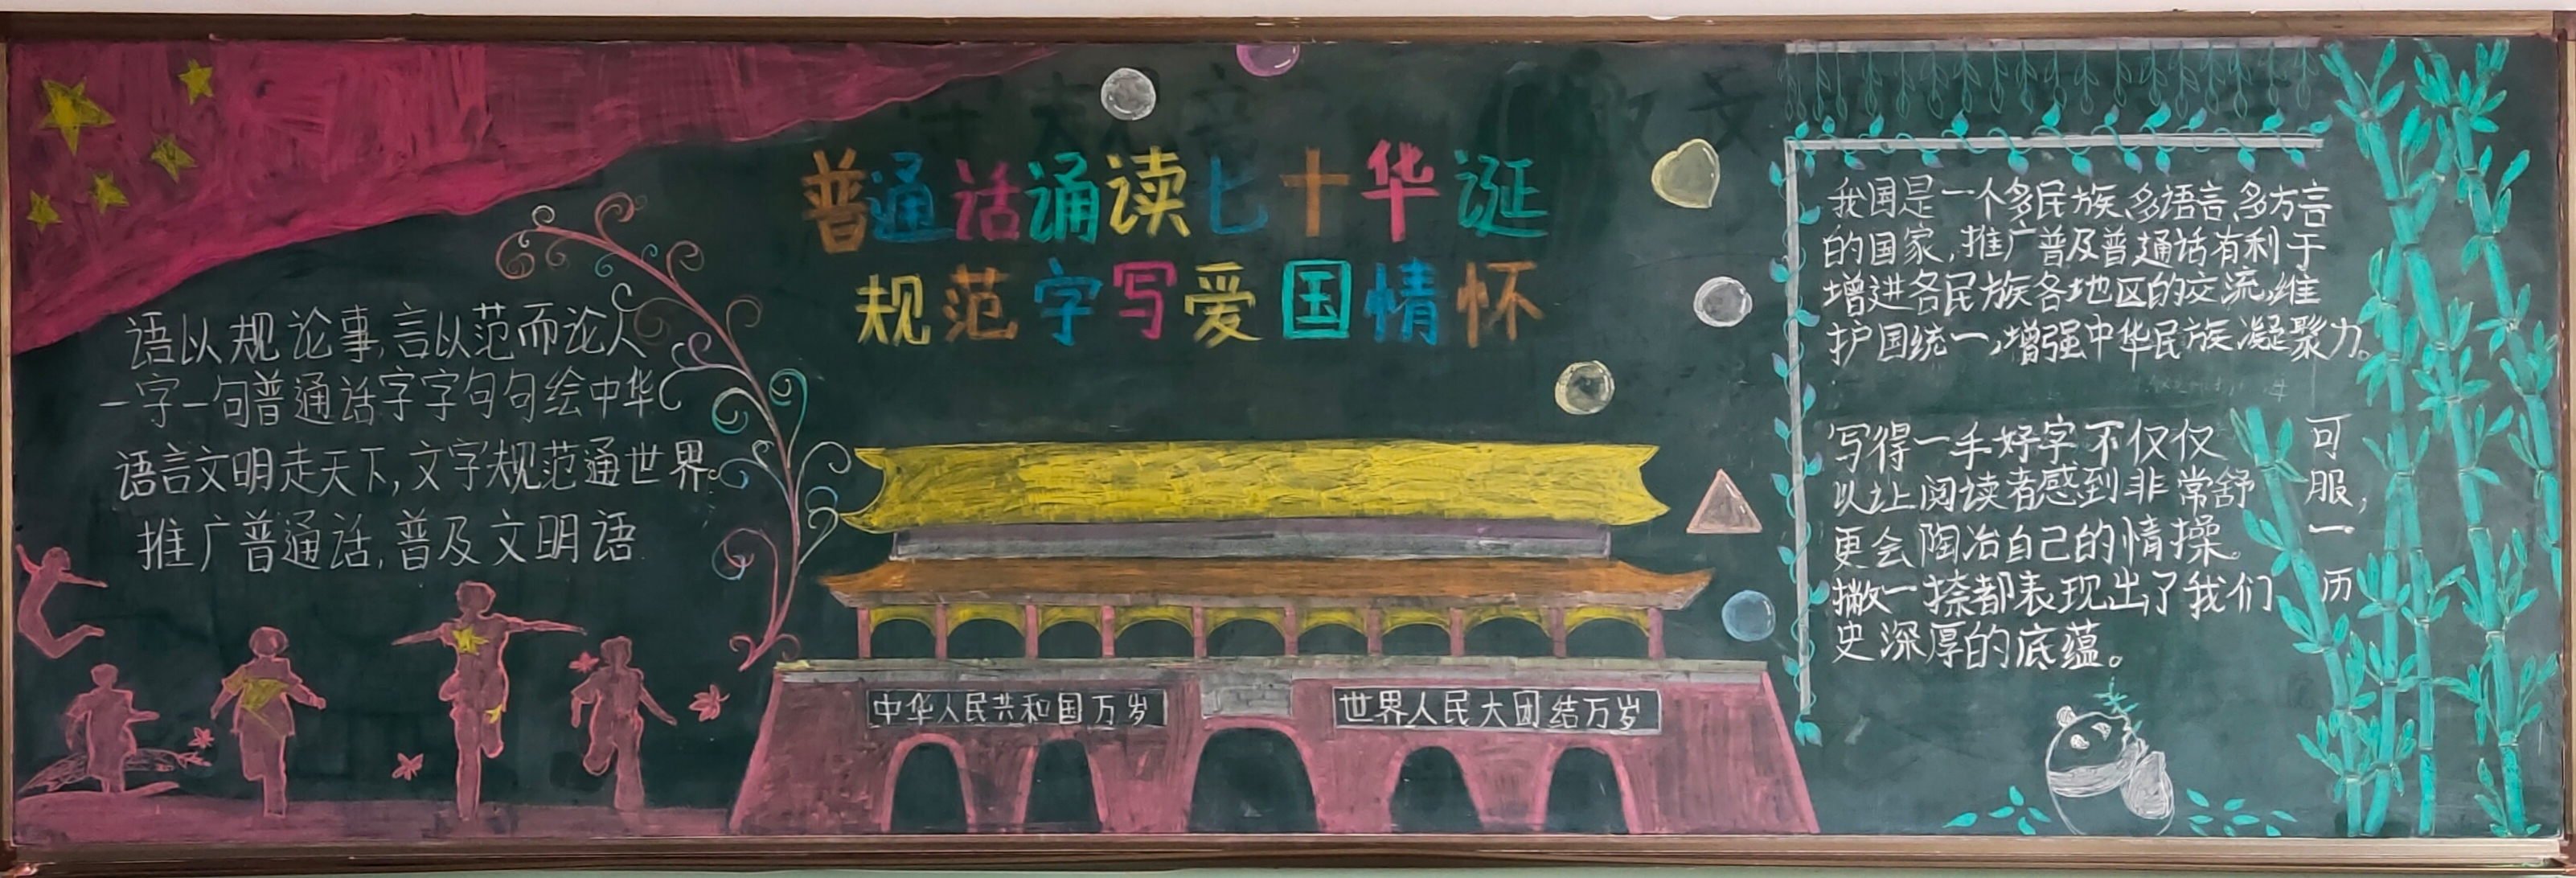 普通话诵读七十华诞
规范字写爱国情怀
语以规论事,言以范而论人
一字一句普通话字字句句绘中华
语言文明走天下,文字规范通世界。
推广普通话,普及文明语
中华人民共和国万岁
世界人民大团结万岁
我国是一个多民族、多语言、多方言
的国家,推广普及普通话有利于
增进各民族各地区的交流,维
护国统一,增强中华民族凝聚力。
写得一手好字不仅仅可
以让阅读者感到非常舒服,
更会陶冶自己的情操。一
撇一捺都表现出了我们历
史深厚的底蕴。